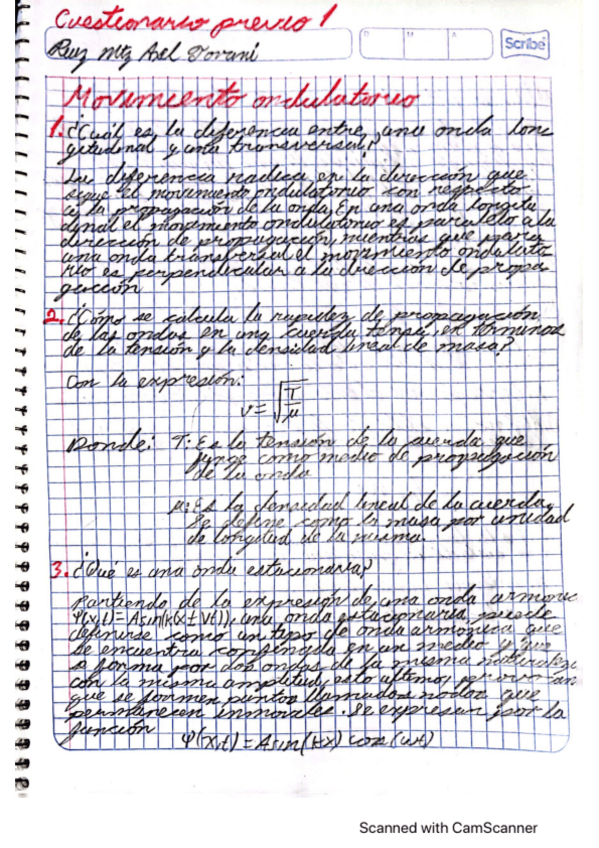 Cuestionario previo 1
Ruiz Mtz Axel Yovani
D M A
Scribe
Movimiento ondulatorio
1. ¿Cuál es la diferencia entre una onda lon
gitudinal y una transversal?
La diferencia radica en la dirección que
sigue el movimiento ondulatorio con respecto
a la propagación de la onda. En una onda longitu
dinal el movimiento ondulatorio es paralelo a la
dirección de propagación, mientras que para
una onda transversal el movimiento ondulato
rio es perpendicular a la dirección de propa
gación
2. ¿Cómo se calcula la rapidez de propagación
de las ondas en una cuerda tensa, en términos
de la tensión y la densidad lineal de masa?
Con la expresión:
v = √(T/μ)
Donde: T: Es la tensión de la cuerda que
funge como medio de propagación
de la onda
μ: Es la densidad lineal de la cuerda,
se define como la masa por unidad
de longitud de la misma.
3. ¿Qué es una onda estacionaria?
Partiendo de la expresión de una onda armonic
Ψ(x,t)=Asin(k(x±vt)), una onda estacionaria puede
definirse como un tipo de onda armónica que
se encuentra confinada en un medio y que
se forma por dos ondas de la misma naturaleza
con la misma amplitud, esto ultimo
que se formen puntos llamados nodos que
permanecen inmoviles. Se expresan por la
función
Ψ(x,t)=Asin(kx) cos(ωt)
Scanned with CamScanner